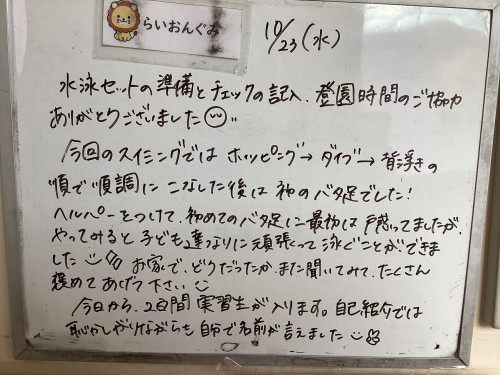 らいおんぐみ
10/23(水)
水泳セットの準備とチェックの記入、登園時間のご協力
ありがとうございました
今回のスイミングでは ホッピング→ダイブ→背浮きの
順で順調にこなした後は 初のバタ足でした!
ヘルパーをつけて、初めてのバタ足に最初は戸惑ってましたが、
やってみると子ども達なりに頑張って泳ぐことができま
した お家で、どうだったか、また聞いてみて、たくさん
褒めてあげて下さい
今日から、2日間 実習生が入ります。自己紹介では
恥かしがりながらも自分で名前が言えました